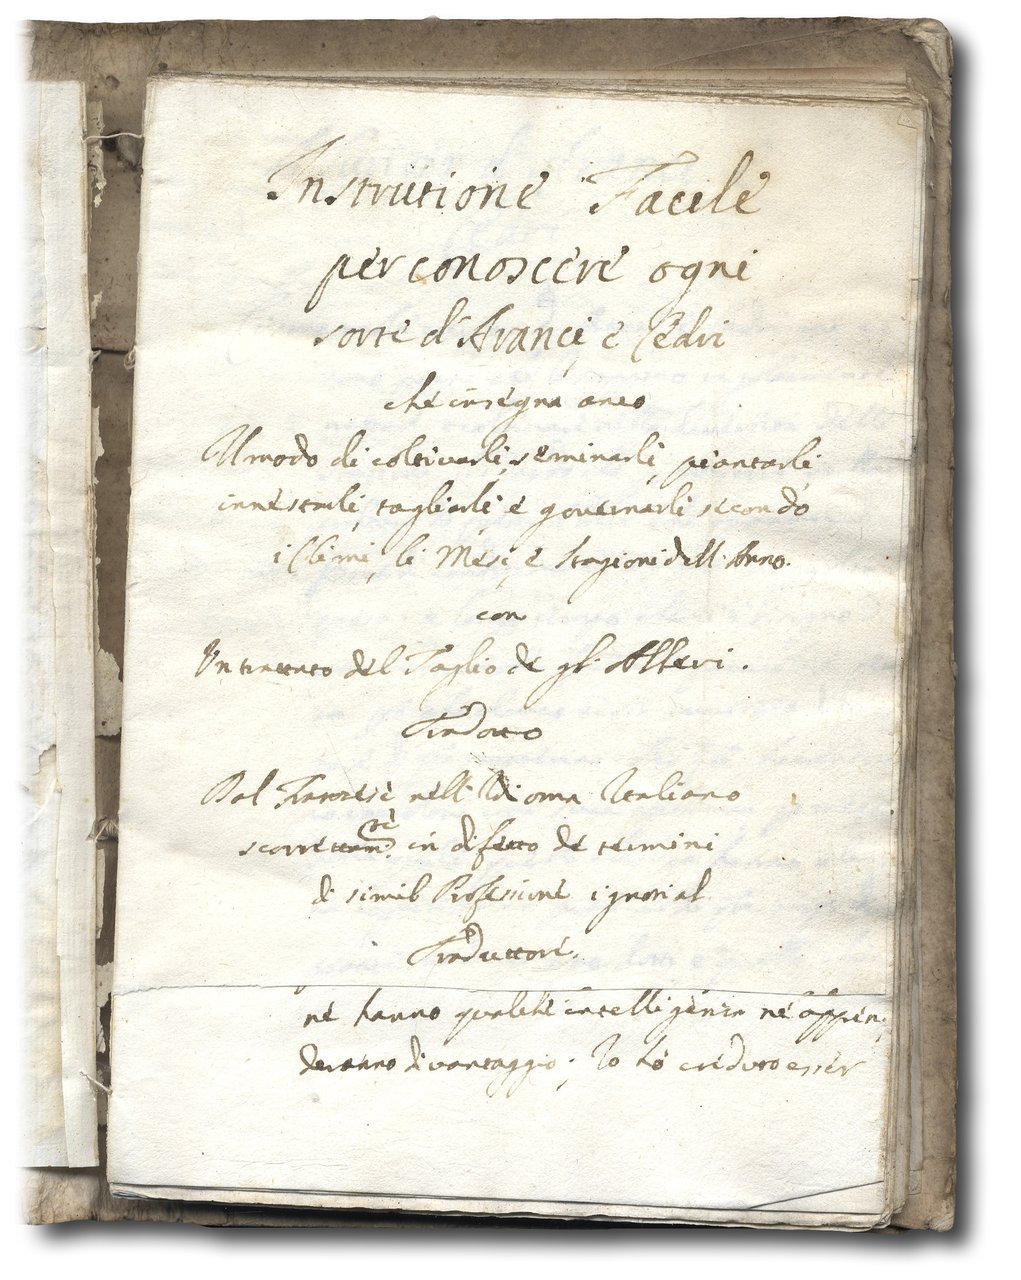 Instrutione Facile
per conoscere ogni
sorte d'Aranci e Cedri
che insegna anco
Il modo di coltivarli, seminarli, piantarli
innestarli, tagliarli e governarli secondo
i Climi, li Mesi, e Stagioni dell'Anno.
con
Un trattato del Taglio de gl'Alberi.
Tradotto
Dal Francese nell'Idioma Italiano
scorrettamte. in difetto de termini
di simil Professione ignori al
Traduttore.
né hanno qualche intelligenza né appren,
deranno di vantaggio; Io hó creduto esser